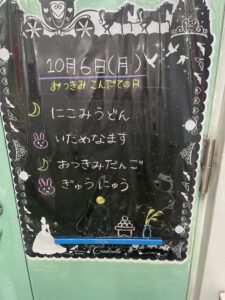 10月6日(月)
おつきみこんだての日
にこみうどん
いためなます
おつきみだんご
ぎゅうにゅう